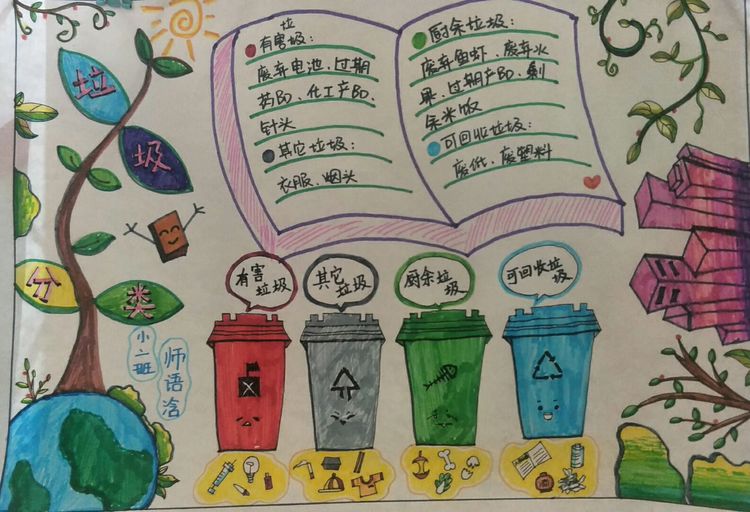 垃
圾
分
类
小二班
师语浛
垃
有害圾：
废弃电池、过期
药品、化工产品、
针头
其它垃圾：
衣服、烟头
厨余垃圾：
废弃鱼虾、废弃水
果、过期产品、剩
余米饭
可回收垃圾：
废低、废塑料
有害
垃圾
其它
垃圾
厨余垃
圾
可回收垃
圾